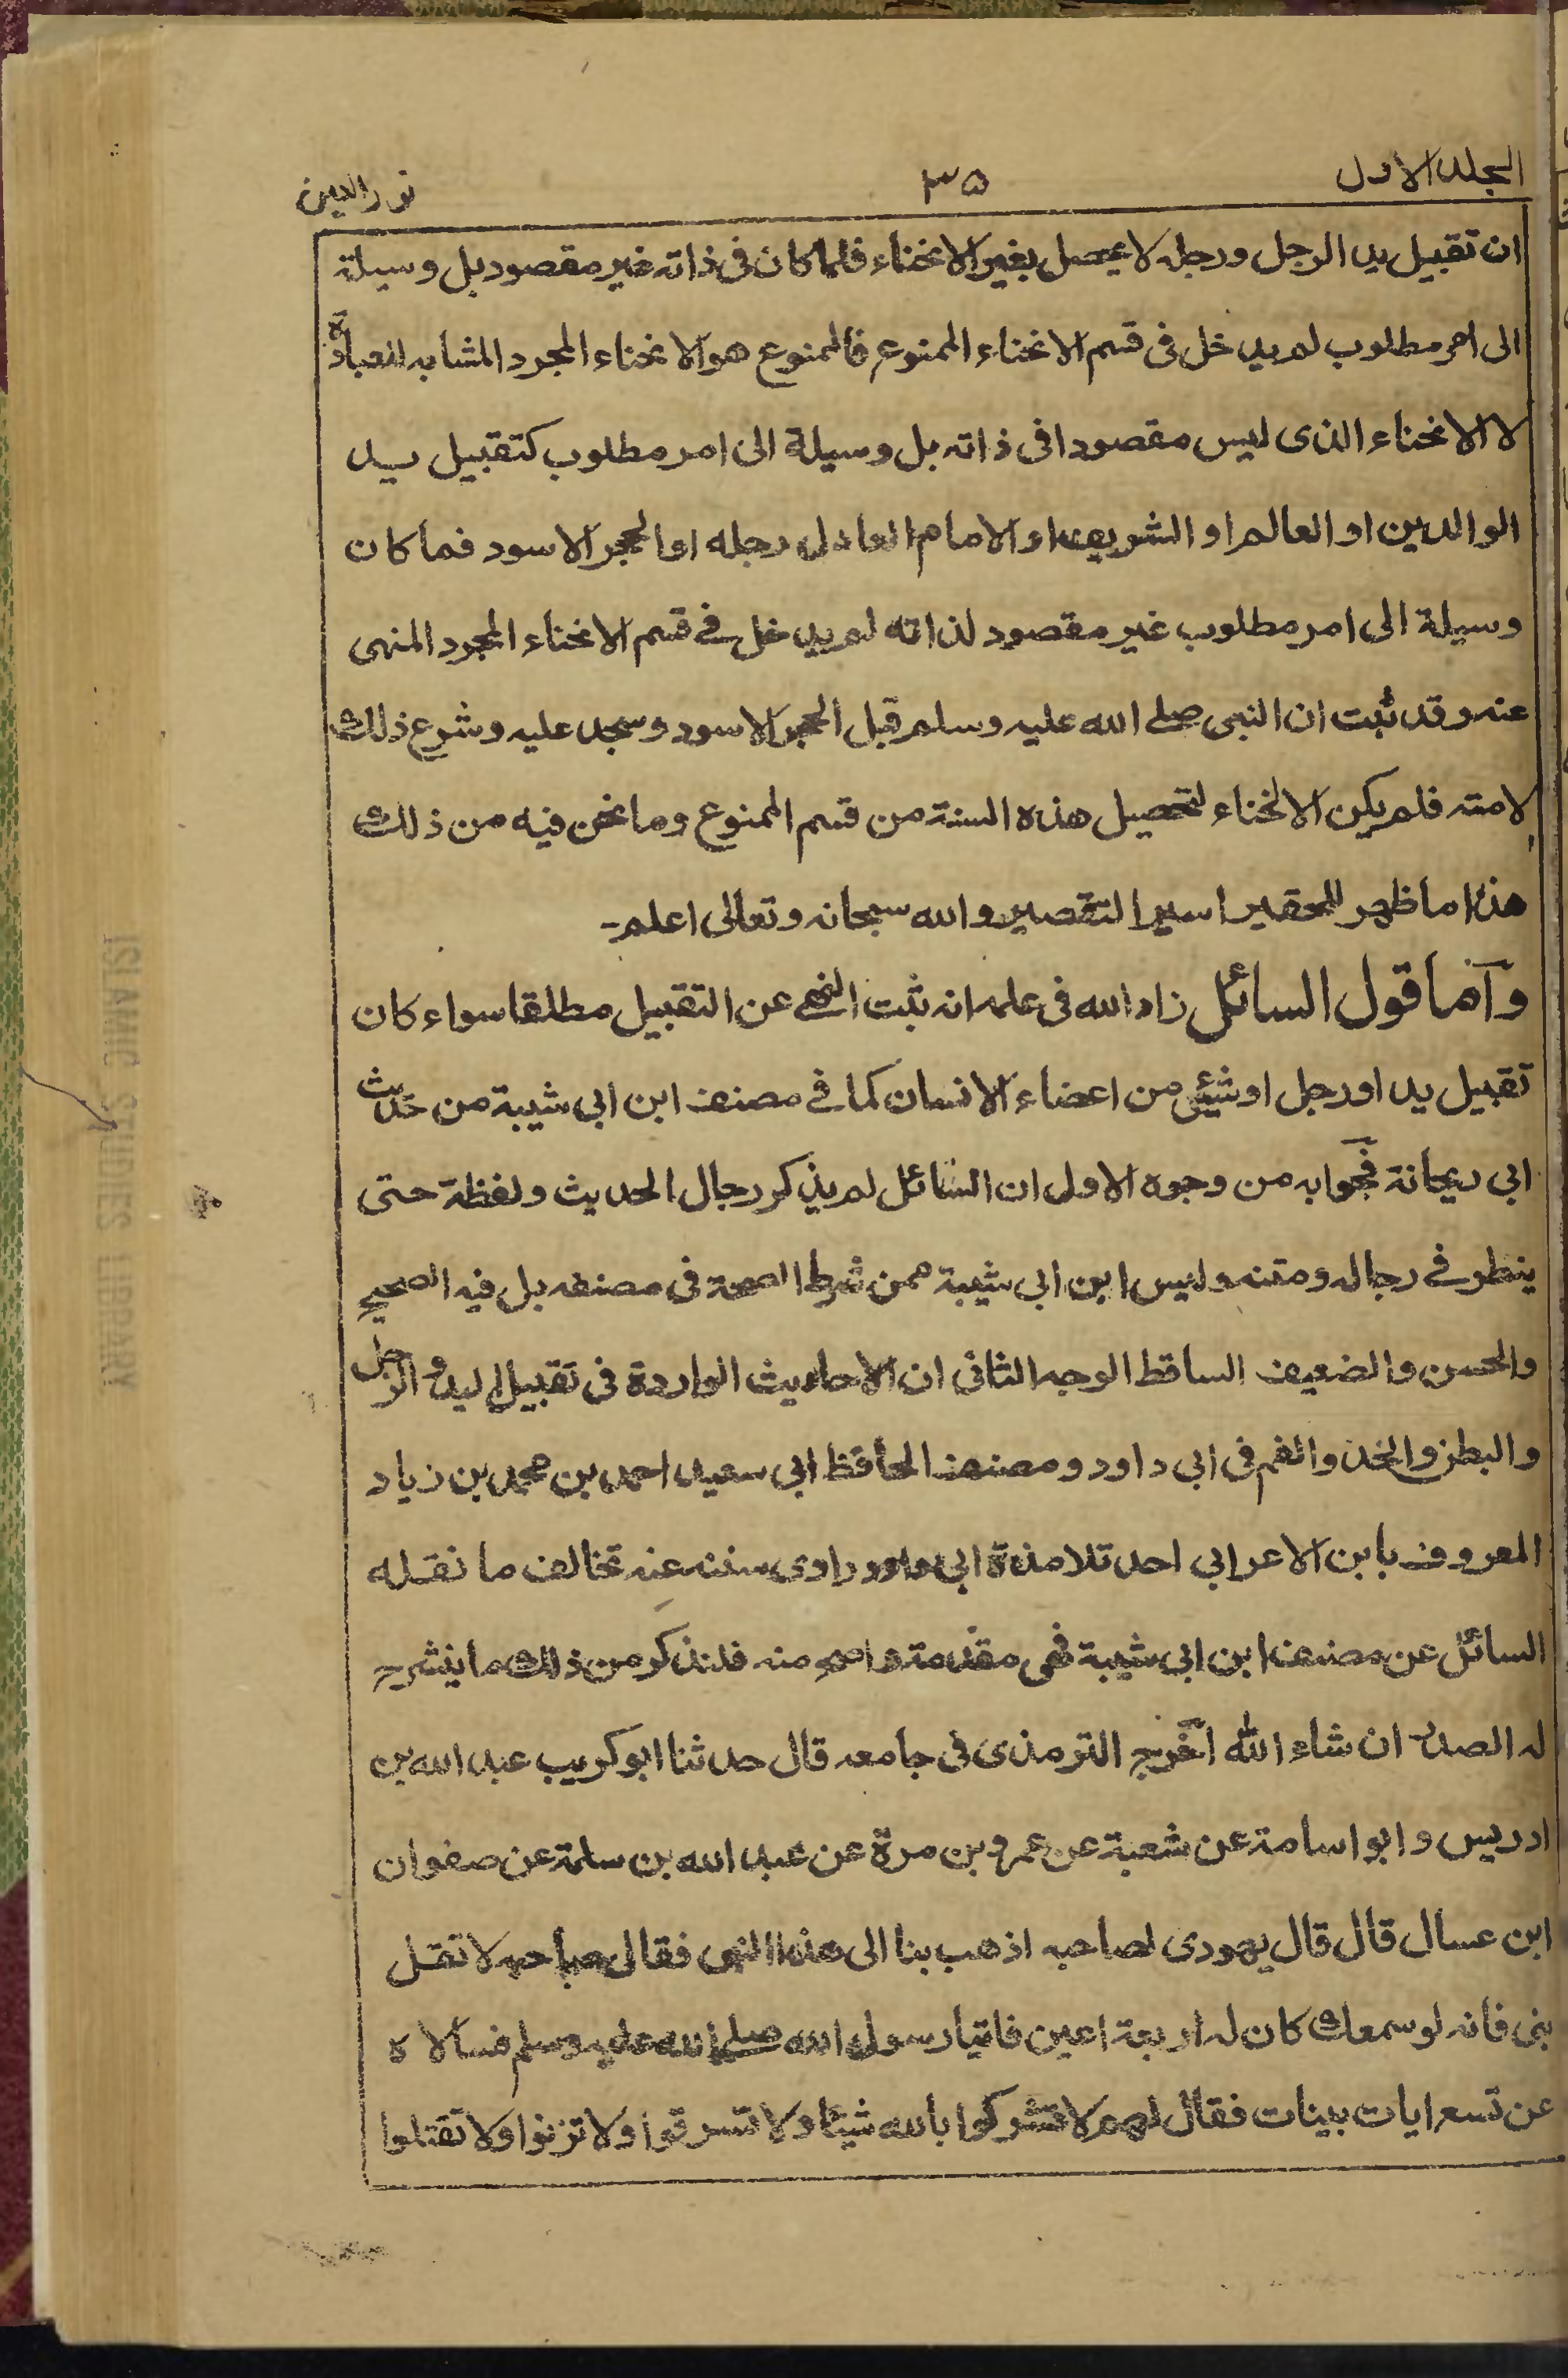 المجلد الاول ٣٥ نور العين
ان تقبيل يد الرجل ورجله لا يحصل بغير الانحناء فلما كان فى ذاته غير مقصود بل وسيلة
الى امر مطلوب لم يدخل فى قسم الانحناء الممنوع فالممنوع هو الانحناء المجرد المشابه للعبادة
لا الانحناء الذى ليس مقصودا فى ذاته بل وسيلة الى امر مطلوب كتقبيل يد
الوالدين او العالم او الشريف او الامام العادل رجله او الحجر الاسود فما كان
وسيلة الى امر مطلوب غير مقصود لذاته لم يدخل فے قسم الانحناء المجرد المنهى
عنه وقد ثبت ان النبى صلے الله عليه وسلم قبل الحجر الاسود وسجد عليه وشرع ذلك
لامته فلم يكن الانحناء لتحصيل هذه السنة من قسم الممنوع وما نحن فيه من ذلك
هذا ما ظهر للحقير اسير التقصير والله سبحانه وتعالى اعلم۔
وآما قول السائل زاد الله فى علمه انه ثبت النهے عن التقبيل مطلقا سواء كان
تقبيل يد او رجل او شيئى من اعضاء الانسان كما فے مصنف ابن ابى شيبة من حديث
ابى ريحانة فجوابه من وجوه الاول ان السائل لم يذكر رجال الحديث ولفظة حتى
ينظر فے رجاله ومتنه وليس ابن ابى شيبة ممن شرط الصحة فى مصنفه بل فيه الصحيح
والحسن والضعيف الساقط الوجه الثانى ان الاحاديث الواردة فى تقبيل اليد والرجل
والبطن والخد والفم فى ابى داود ومصنف الحافظ ابى سعيد احمد بن محمد بن زياد
المعروف بابن الاعرابى احد تلامذة ابى داود راوى سننه عنه تخالف ما نقله
السائل عن مصنف ابن ابى شيبة فهى مقدمة واصح منه فلنذكر من ذلك ما ينشرح
له الصدر ان شاء الله آخرج الترمذى فى جامعه قال حدثنا ابوكريب عبد الله بن
ادريس وابو اسامة عن شعبة عن عمرو بن مرة عن عبد الله بن سلمة عن صفوان
ابن عسال قال قال يهودى لصاحبه اذهب بنا الى هذا النبى فقال صاحبه لا تقل
نبى فانه لو سمعك كان له اربعة اعين فاتيا رسول الله صلے الله عليه وسلم فسالاه
عن تسع ايات بينات فقال لهم لا تشركوا بالله شيئا ولا تسرقوا ولا تزنوا ولا تقتلوا